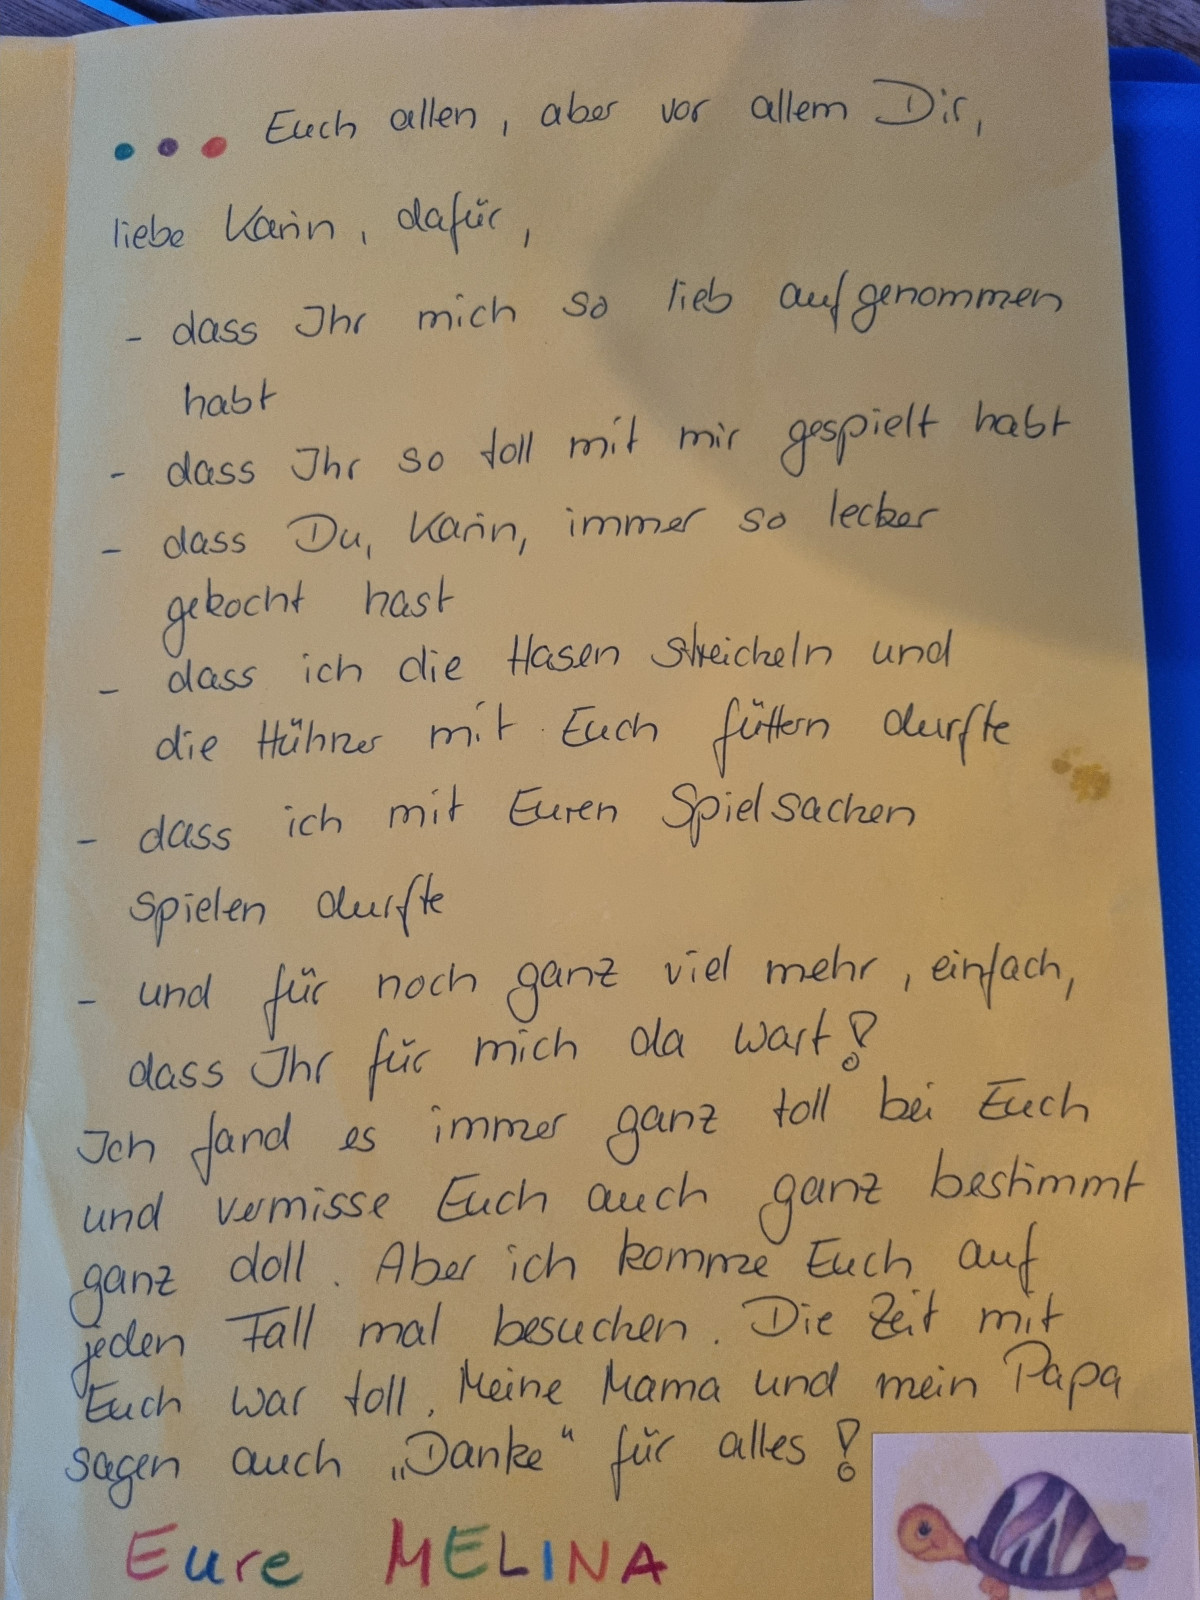 ... Euch allen, aber vor allem Dir,
liebe Karin, dafür,
- dass Ihr mich so lieb aufgenommen
habt
- dass Ihr so toll mit mir gespielt habt
- dass Du, Karin, immer so lecker
gekocht hast
- dass ich die Hasen streicheln und
die Hühner mit Euch füttern durfte
- dass ich mit Euren Spielsachen
spielen durfte
- und für noch ganz viel mehr, einfach,
dass Ihr für mich da wart!
Ich fand es immer ganz toll bei Euch
und vermisse Euch auch ganz bestimmt
ganz doll. Aber ich komme Euch auf
jeden Fall mal besuchen. Die Zeit mit
Euch war toll. Meine Mama und mein Papa
sagen auch „Danke“ für alles!
Eure MELINA